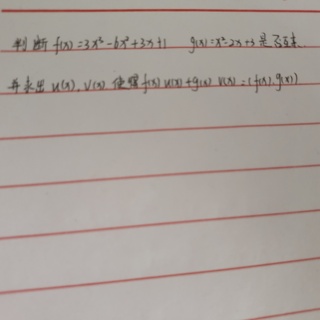 判断 f(x)=3x³-6x²+3x+1 g(x)=x²-2x+3 是否互素.
并求出 u(x), v(x) 使得 f(x) u(x)+g(x) v(x)=(f(x), g(x))